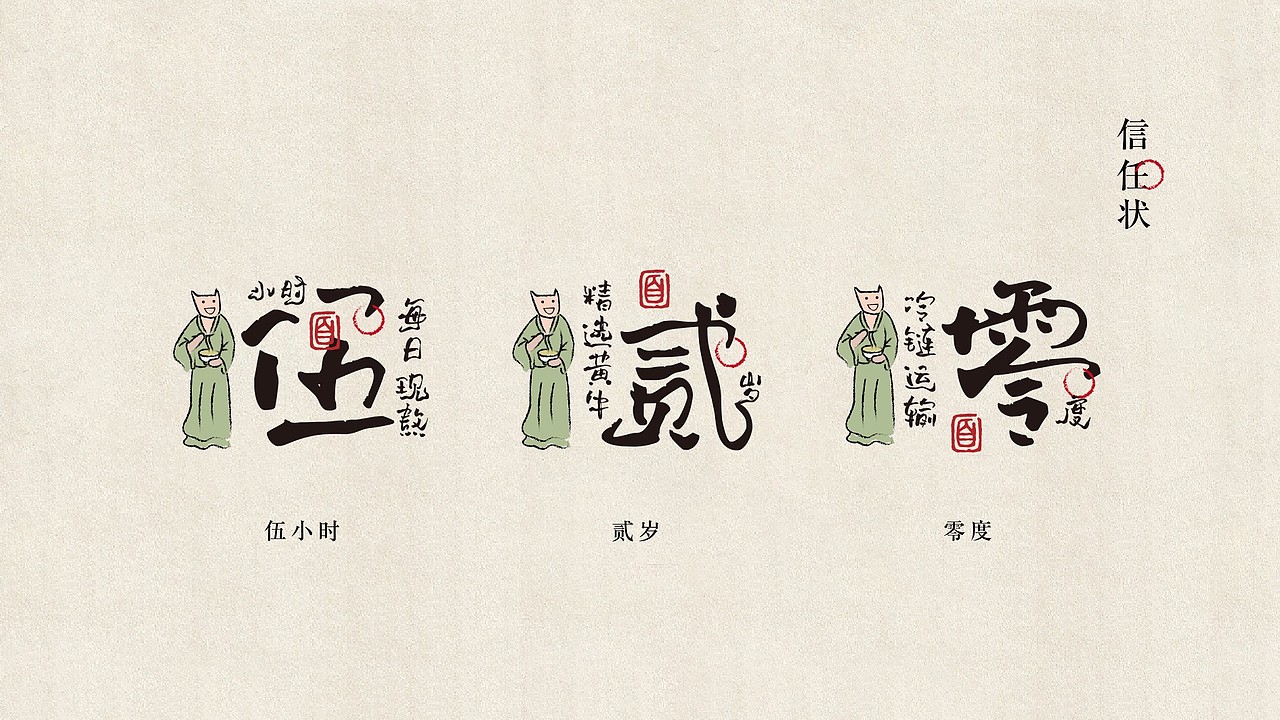 信任状
小时
伍
每日现熬
精选黄牛
贰
岁
冷链运输
零
度
伍小时
贰岁
零度